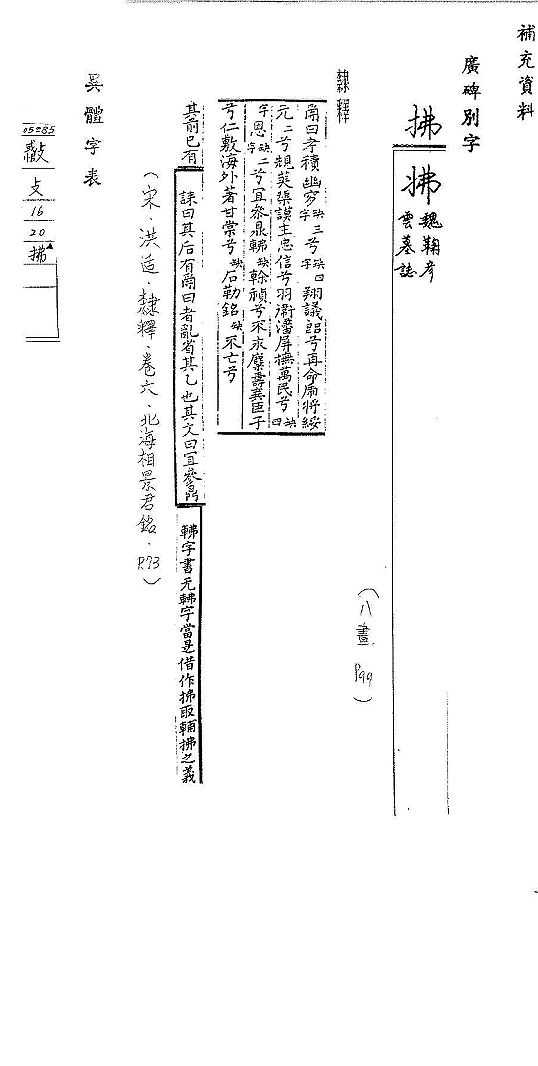 補充資料
廣碑別字
拂
拂 魏鞠彥
雲墓誌
(八畫 P.99)
隸釋
曰孝積幽穸缺三字兮缺四字翔議郎兮再命虎將綏
元二兮規英謨主忠信兮羽衛藩屏撫萬民兮缺四
字恩缺二字兮宜參鼎缺幹禎兮不永麋壽棄臣子
兮仁敷海外著甘棠兮缺石勒銘缺不亡兮
其前已有
誄曰其后有曰者亂省其乙也其文曰宜參鼎
字書无字當是借作拂取輔拂之義
(宋.洪适.隸釋.卷六.北海相景君銘.P.73)
異體字表
05285
攴
16
20
拂